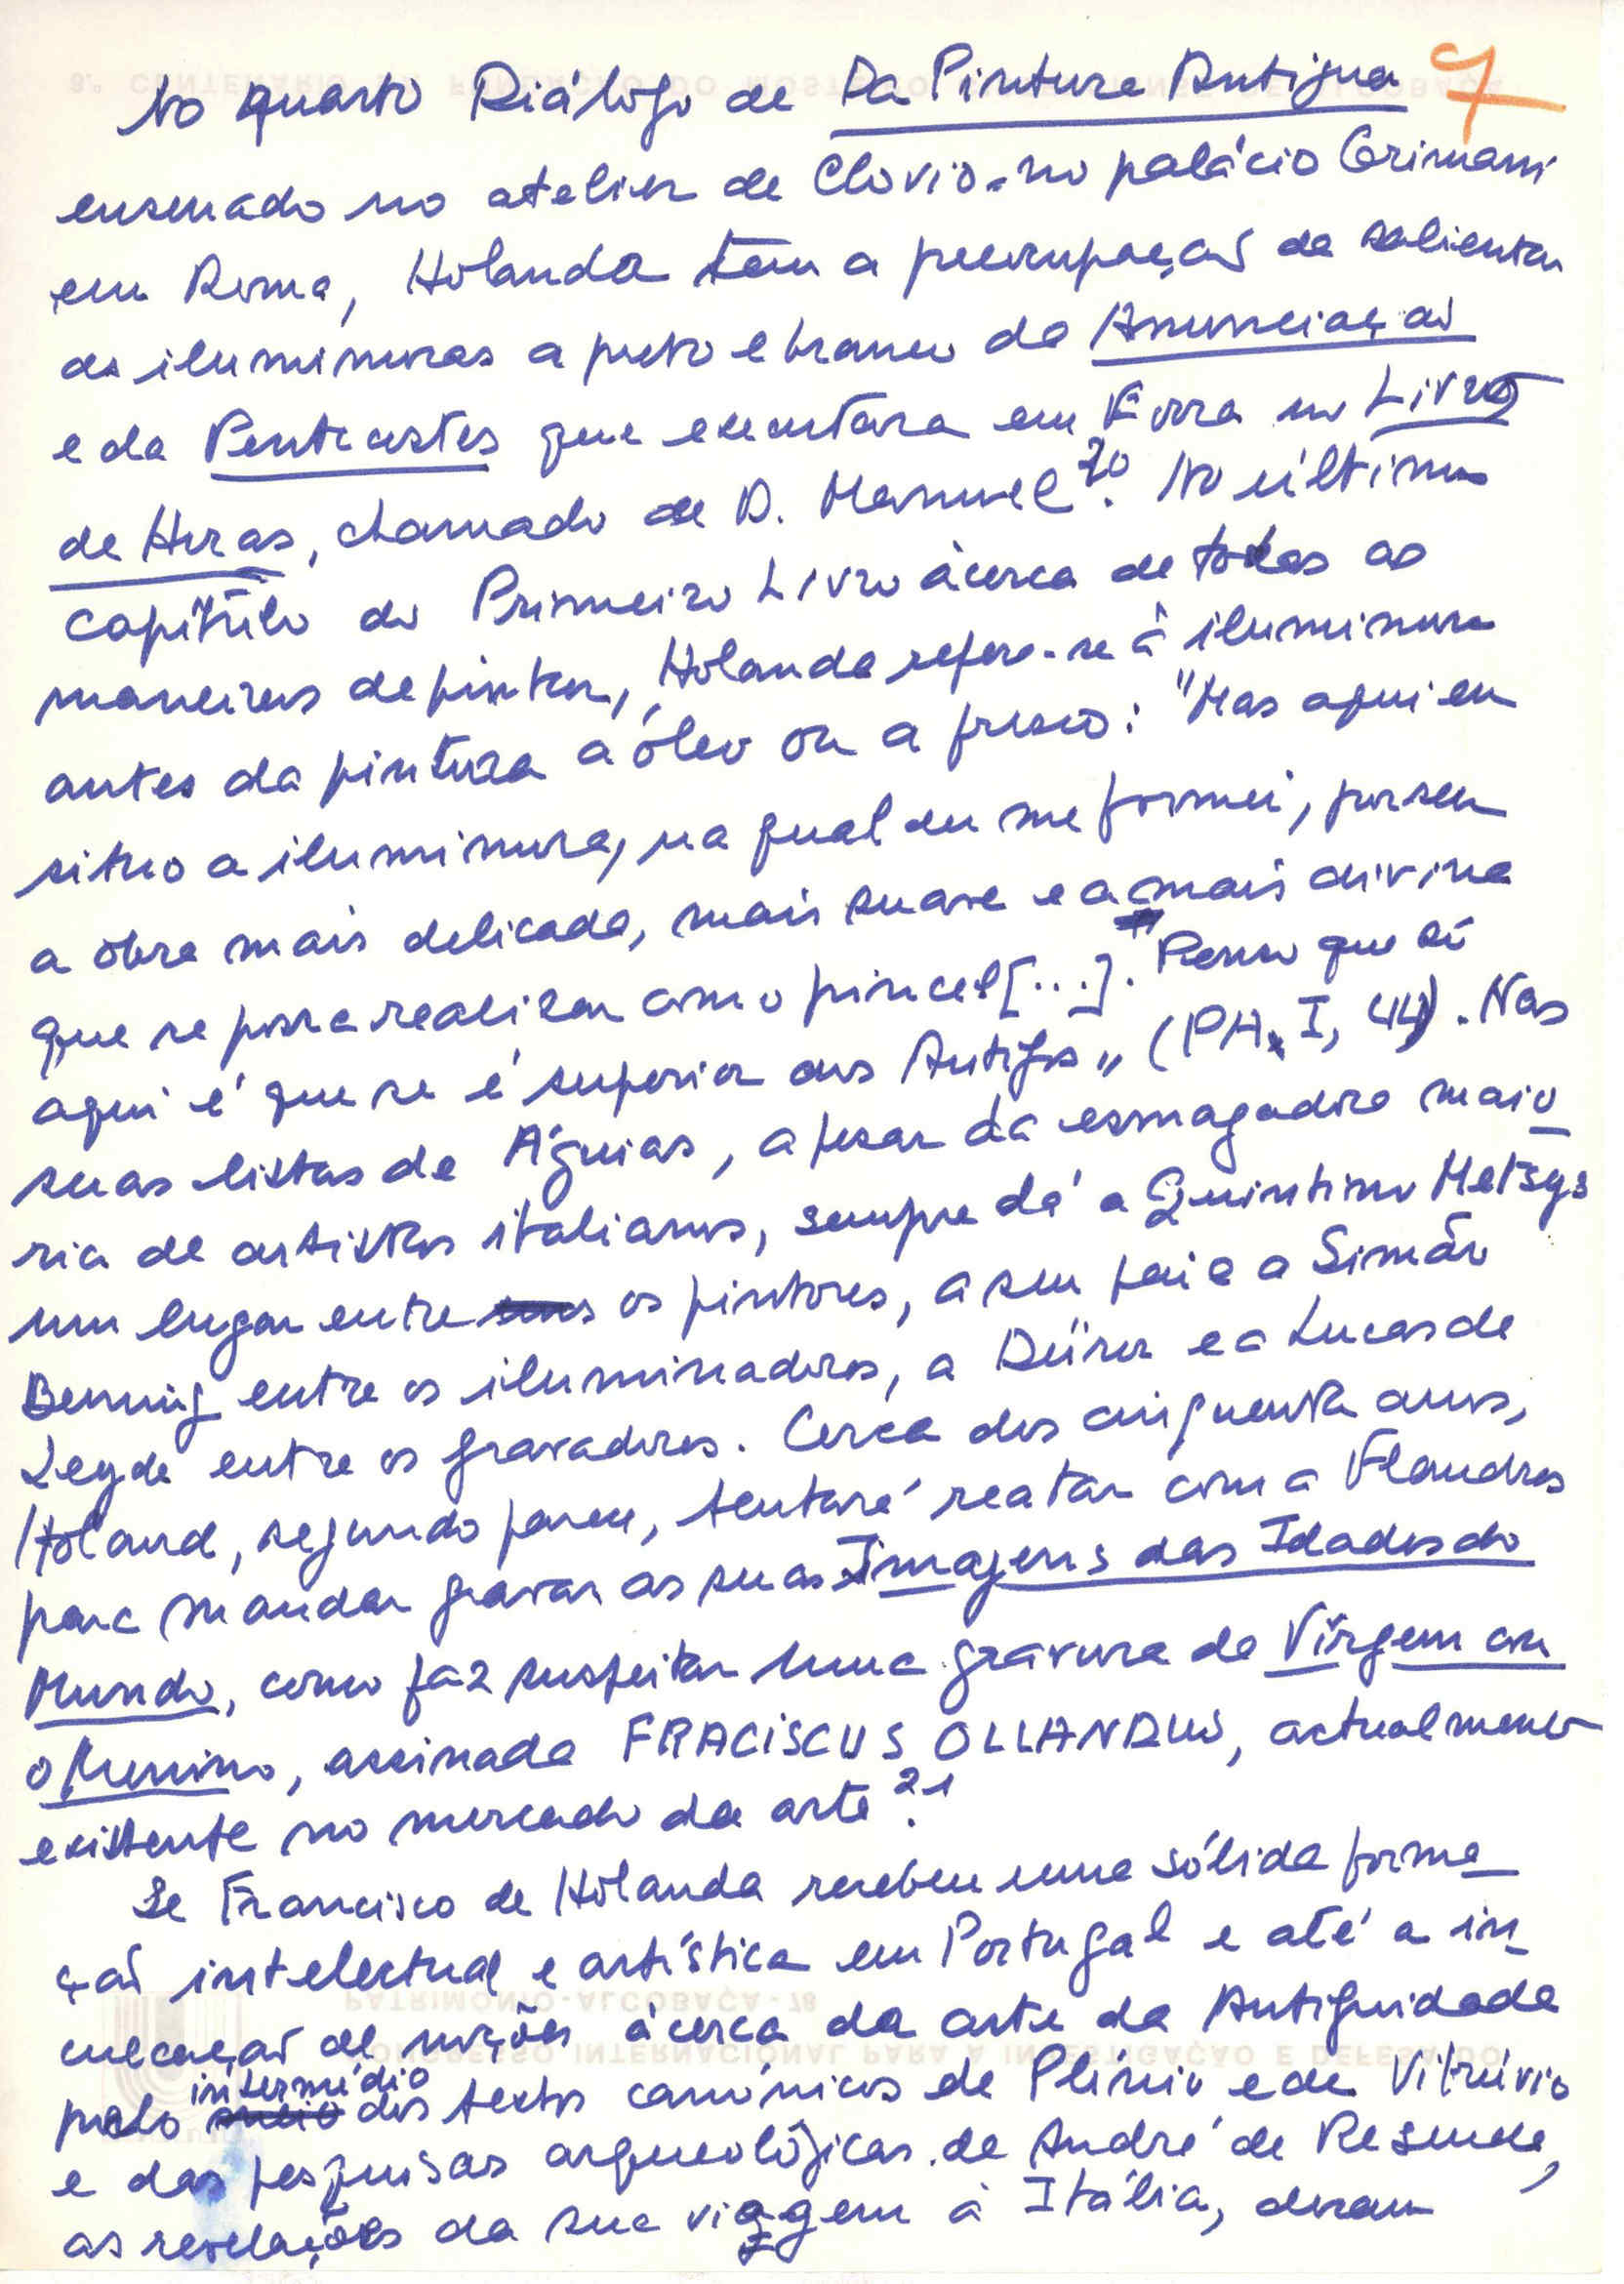 No quarto Diálogo de Da Pintura Antigua 7
ensenado no atelier de Clovio no palácio Grimani
em Roma, Holanda tem a preocupação de salientar
as iluminuras a preto e branco da Anunciação
e da Pentecostes que executara em Évora no Livro
de Horas, chamado de D. Manuel 20. No último
capítulo do Primeiro Livro àcerca de todas as
maneiras de pintar, Holanda refere-se à iluminura
antes da pintura a óleo ou a fresco: "Mas aqui eu
sitúo a iluminura, na qual eu me formei, por seu
a obra mais delicada, mais suave e a mais divina
que se possa realizar com o pincel [...]. Penso que só
aqui é que se é superior aos Antigos" (PA, I, 44). Nas
suas listas de Águias, apesar da esmagadora maio-
ria de artistas italianos, sempre dá a Quintino Metsys
um lugar entre os pintores, a seu pai e a Simão
Bening entre os iluminadores, a Dürer e a Lucas de
Leyde entre os gravadores. Cerca dos cinquenta anos,
Holand, segundo parece, tentará reatar com a Flandres
para mandar gravar as suas Imagens das Idades do
Mundo, como faz suspeitar uma gravura da Virgem com
o Menino, assinada FRACISCUS OLLANDUS, actualmente
existente no mercado da arte 21.
Se Francisco de Holanda recebeu uma sólida forma-
ção intelectual e artística em Portugal e até a in-
culcação de noções àcerca da arte da Antiguidade
pelo intermédio dos textos canónicos de Plínio e de Vitrúvio
e das pesquisas arqueológicas de André de Resende,
as revelações da sua viagem à Itália, deram
PATRIMÓNIO-ALCOBAÇA-78
CONGRESSO INTERNACIONAL PARA A INVESTIGAÇÃO E DEFESA DO